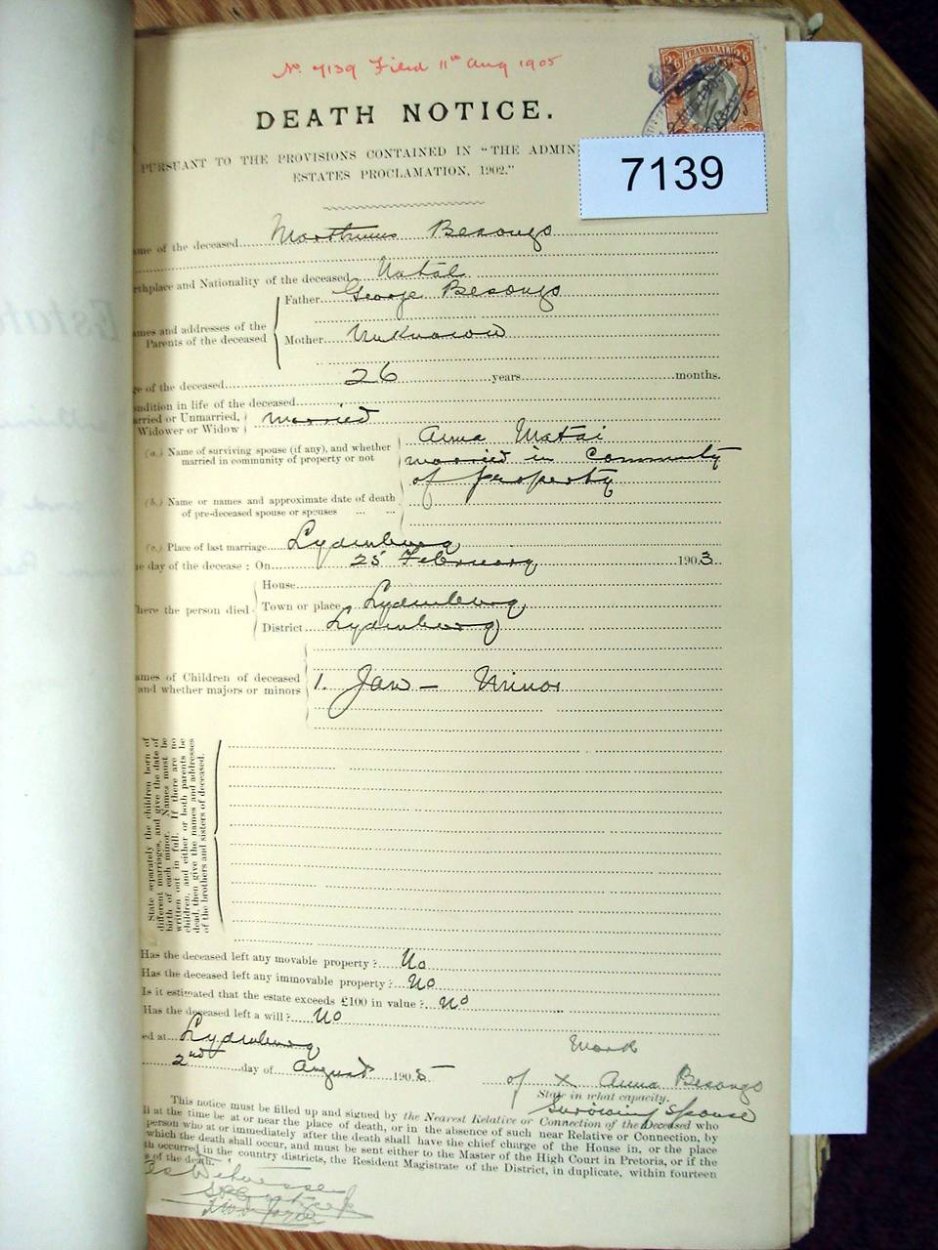 No. 7139 Filed 11th Aug 1905
TRANSVAAL
2/6 2/6
DEATH NOTICE.
PURSUANT TO THE PROVISIONS CONTAINED IN "THE ADMIN
ESTATES PROCLAMATION, 1902."
7139
of the deceased Marthinus Besongo
and Nationality of the deceased Natal
Father George Besongo
and addresses of the
Parents of the deceased
Mother Unknown
of the deceased 26 years months.
in life of the deceased
or Unmarried, married
Widower or Widow
(a.) Name of surviving spouse (if any), and whether Anna Matai
married in community of property or not married in Community
of property
(b.) Name or names and approximate date of death
of pre-deceased spouse or spouses
(c.) Place of last marriage Lydenburg
day of the decease: On 25 February 1903
House
the person died Town or place Lydenburg
District Lydenburg
of Children of deceased
and whether majors or minors 1. Jan - Minor
State separately the children born of
different marriages, and give the date of
birth of each minor. Names must be
written out in full. If there are no
children, and either or both parents be
dead, then give the names and addresses
of the brothers and sisters of deceased.
Has the deceased left any movable property? No
Has the deceased left any immovable property? No
Is it estimated that the estate exceeds £100 in value? No
Has the deceased left a will? No
at Lydenburg
Mark
2nd day of August 1905
of X Anna Besongo
State in what capacity.
Surviving Spouse
This notice must be filled up and signed by the Nearest Relative or Connection of the Deceased who
at the time be at or near the place of death, or in the absence of such near Relative or Connection, by
person who at or immediately after the death shall have the chief charge of the House in, or the place
which the death shall occur, and must be sent either to the Master of the High Court in Pretoria, or if the
occurred in the country districts, the Resident Magistrate of the District, in duplicate, within fourteen
of the death.
As Witnesses